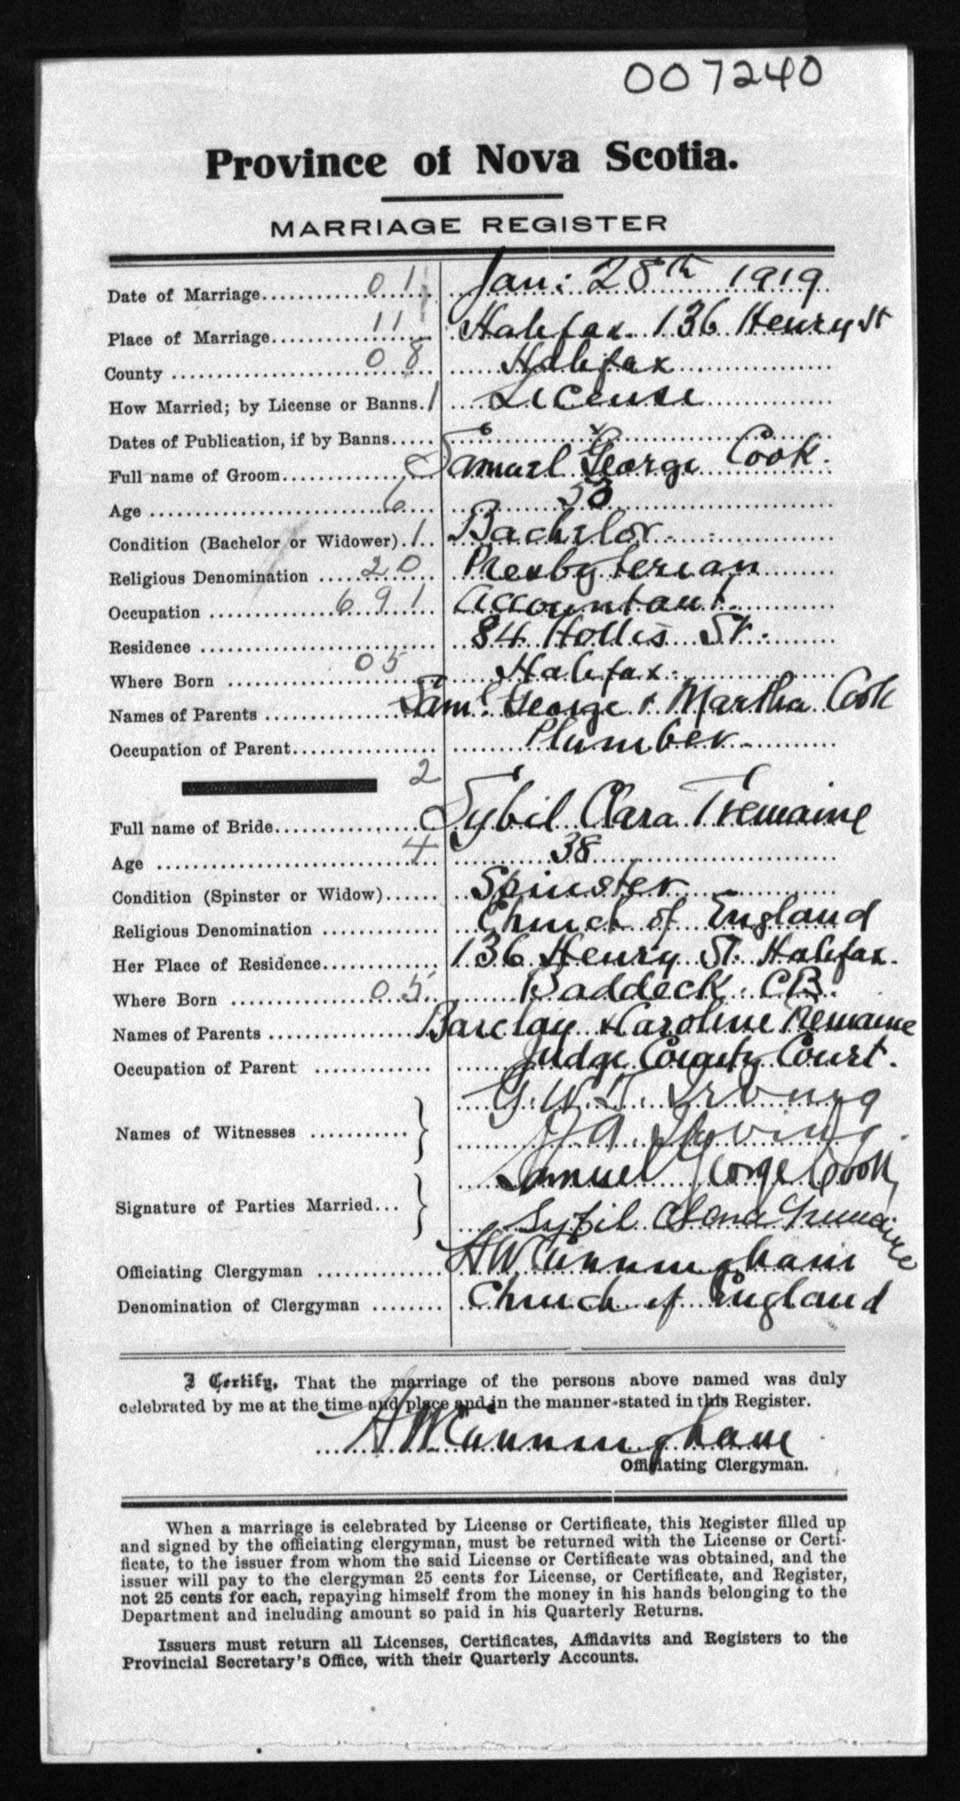 007240
Province of Nova Scotia.
MARRIAGE REGISTER
Date of Marriage 01 Jan: 28th 1919
Place of Marriage 11 Halifax. 136 Henry St
County 08 Halifax
How Married; by License or Banns. 1 License
Dates of Publication, if by Banns
Full name of Groom Samuel George Cook.
Age 6 53
Condition (Bachelor or Widower) 1 Bachelor
Religious Denomination 20 Presbyterian
Occupation 691 Accountant
Residence 84 Hollis St.
Where Born 05 Halifax.
Names of Parents Saml George & Martha Cook
Occupation of Parent Plumber
2
Full name of Bride Sybil Clara Tremaine
Age 4 38
Condition (Spinster or Widow) Spinster
Religious Denomination Church of England
Her Place of Residence 136 Henry St. Halifax.
Where Born 05 Baddeck. C.B.
Names of Parents Barclay & Caroline Tremaine
Occupation of Parent Judge County Court.
Names of Witnesses G. W. T. Irving
A. Irving
Signature of Parties Married Samuel George Cook
Sybil Clara Tremaine
Officiating Clergyman A W Cunningham
Denomination of Clergyman Church of England
I Certify, That the marriage of the persons above named was duly
celebrated by me at the time and place and in the manner stated in this Register.
A W Cunningham
Officiating Clergyman.
When a marriage is celebrated by License or Certificate, this Register filled up
and signed by the officiating clergyman, must be returned with the License or Certi-
ficate, to the issuer from whom the said License or Certificate was obtained, and the
issuer will pay to the clergyman 25 cents for License, or Certificate, and Register,
not 25 cents for each, repaying himself from the money in his hands belonging to the
Department and including amount so paid in his Quarterly Returns.
Issuers must return all Licenses, Certificates, Affidavits and Registers to the
Provincial Secretary's Office, with their Quarterly Accounts.